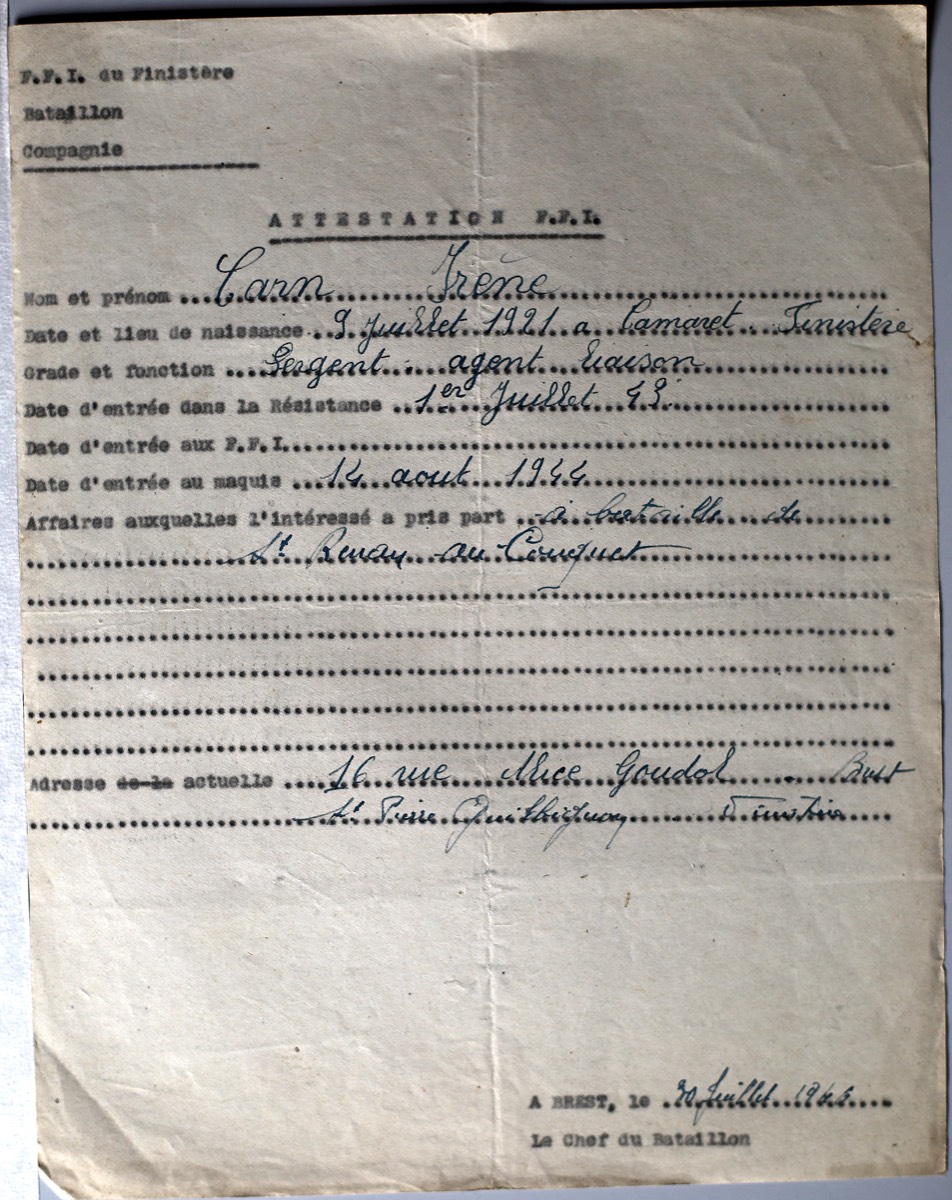 F.F.I. du Finistère
Bataillon
Compagnie
ATTESTATION F.F.I.
Nom et prénom ... Carn Irène
Date et lieu de naissance .. 9 Juillet 1921 a Camaret . Finistère
Grade et fonction ... Sergent . agent liaison
Date d'entrée dans la Résistance .. 1er Juillet 43.
Date d'entrée aux F.F.I.
Date d'entrée au maquis ... 14 aout 1944
Affaires auxquelles l'intéressé a pris part .. à bataille de
St Renan au Conquet
Adresse de la actuelle .... 16 rue Alice Brest
St Pierre Quilbignon Finistère
A BREST, le . Juillet 1945
Le Chef du Bataillon